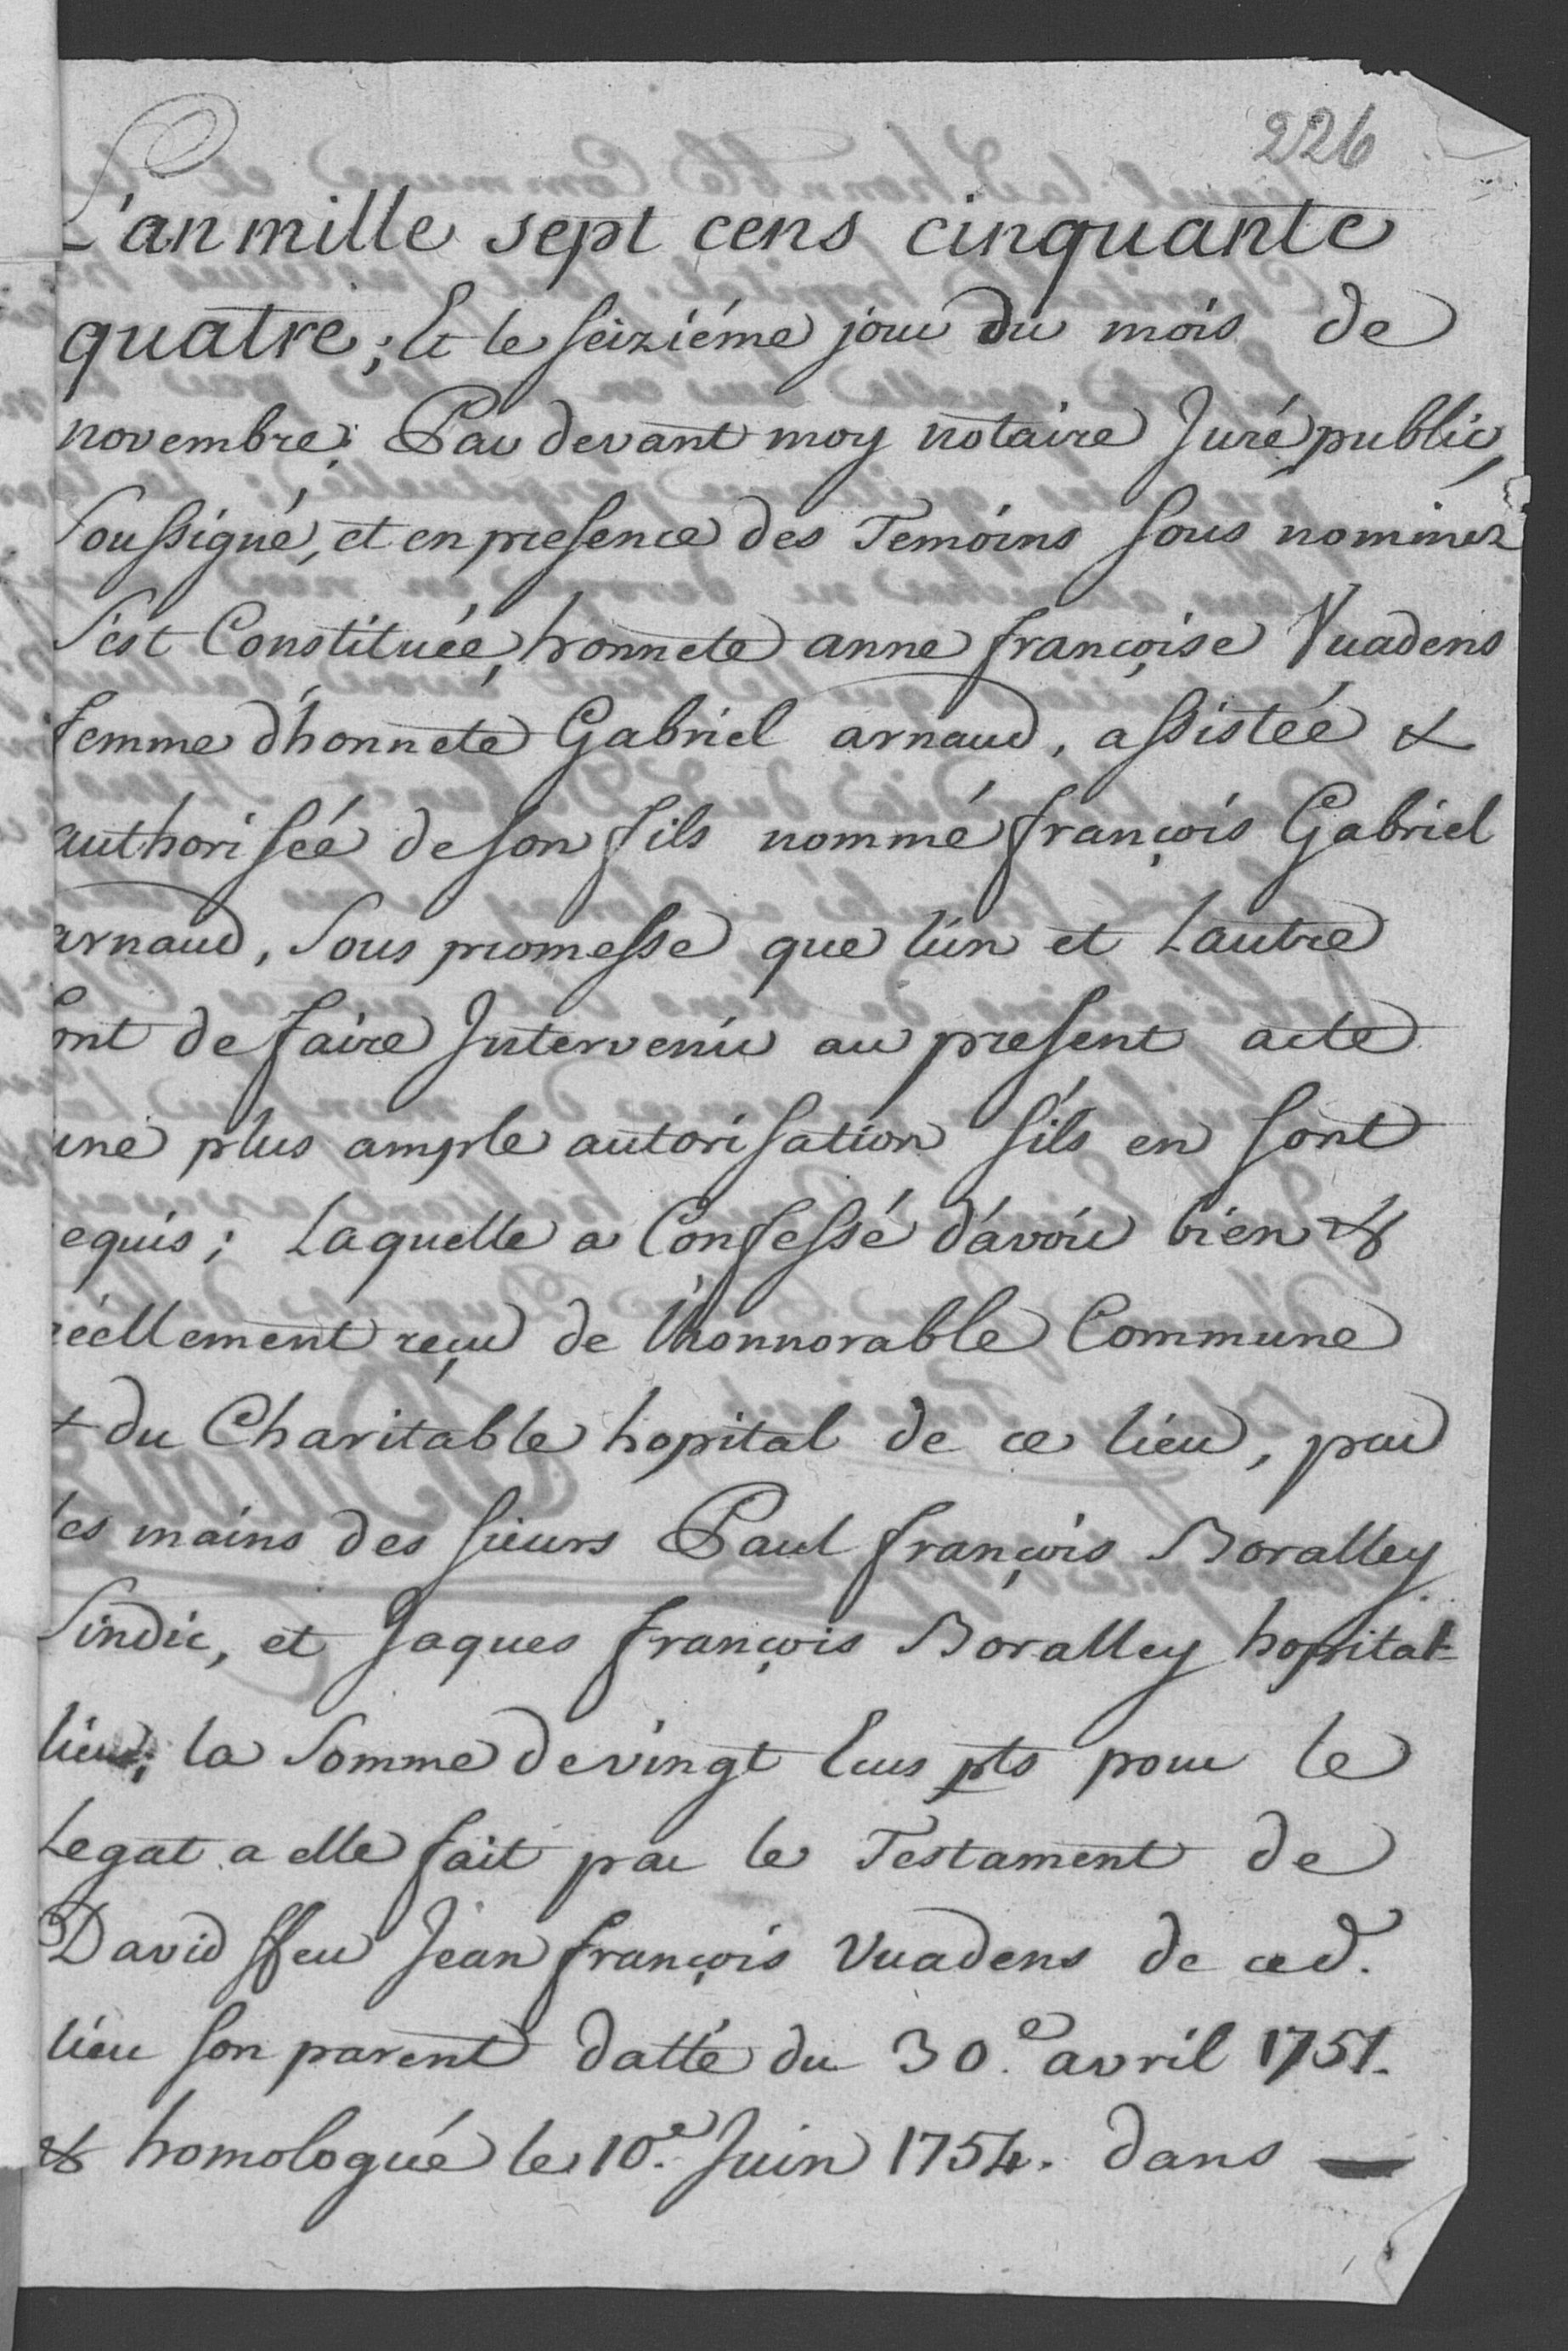 226
L'an mille sept cens cinquante
quatre; Et le seiziéme jour du mois de
novembre; Par devant moy notaire Juré public,
soussigné, et en presence des Temoins sous nommez
s'est Constituée, honnete anne françoise Vuadens
femme d'honnete Gabriel arnaud, assistéé &
authoriséé de son fils nommé françois Gabriel
arnaud, sous promesse que l'un et Lautre
font de faire Intervenir au present acte
une plus ample autorisation s'ils en sont
requis; Laquelle a Confessé d'avoir bien &
réellement reçu de l'honnorable Commune
& du Charitable hopital de ce lieu, par
les mains des sieurs Paul françois Boralley
sindic, et Jaques françois Boralley hopital-
lier; la somme de vingt Ecus pts pour le
Legat a elle fait par le Testament de
David ffeu Jean françois Vuadens de ced.
lieu son parent datté du 30.e avril 1751.
& homologué le 10.e Juin 1754. dans —